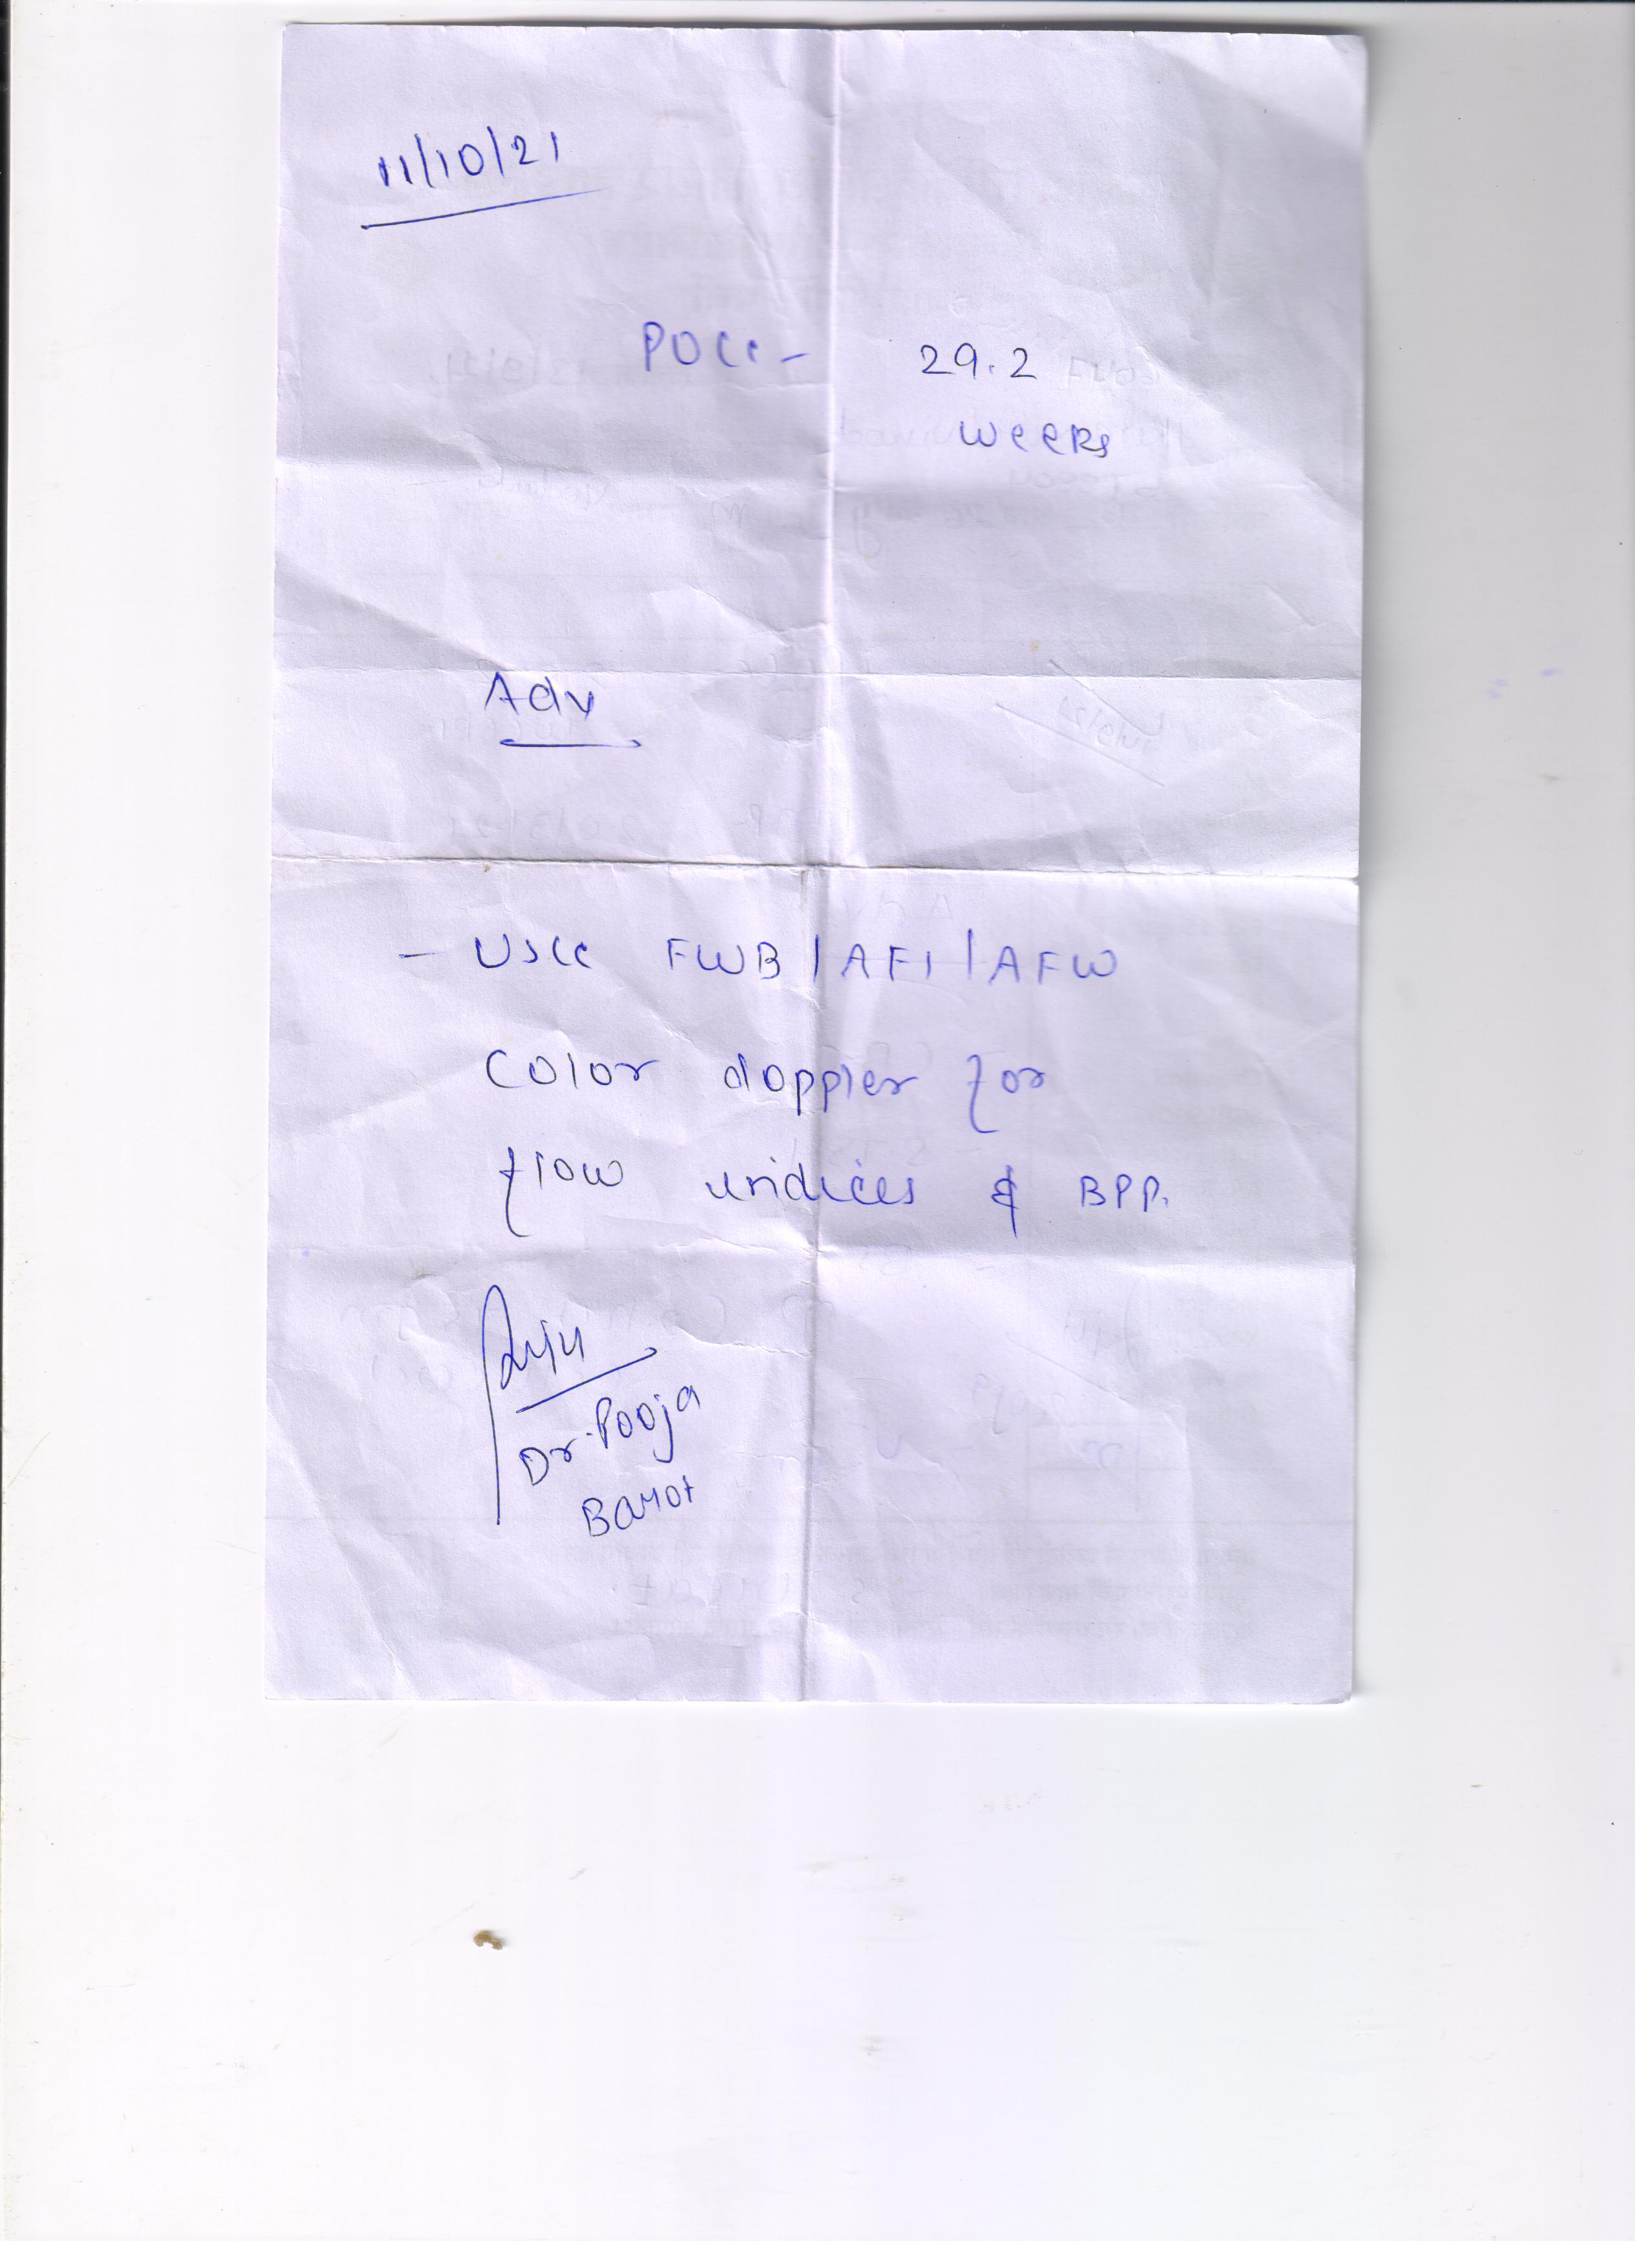 11/10/21
POG - 29.2
weeks
Adv
- USG FWB/AFI/AFW
Color doppler for
flow indices & BPP.
Dr. Pooja
Barot